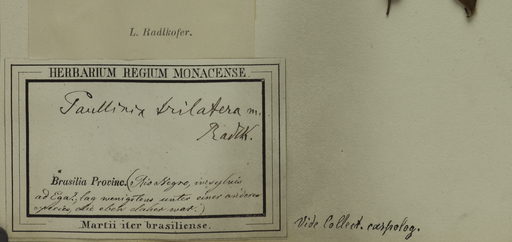 L. Radlkofer.
HERBARIUM REGIUM MONACENSE
Paullinia trilatera m.
Radlk.
Brasilia Provinc. (Rio Negro, in sylvis
ad Ega?, lag wenigstens unter einer anderen
species, die eben daher war.)
Martii iter brasiliense.
Vide Collect. carpolog.